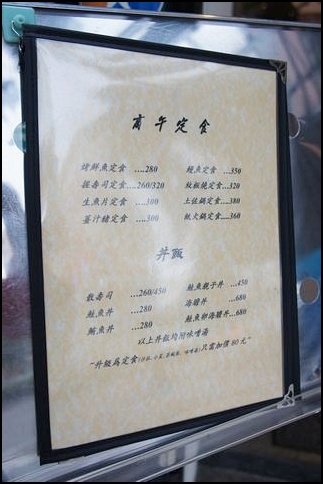 商午定食
烤鮮魚定食 ....280
握壽司定食....260/320
生魚片定食 ....300
薑汁豬定食 ....300
鰻魚定食 ...350
蚊板燒定食...320
土佐鍋定食....380
紙火鍋定食....360
丼飯
散壽司 ....260/450
鮭魚丼 ....280
鮪魚丼 ....280
鮭魚親子丼 ...450
海膽丼 ....680
鮭魚卵海膽丼...680
以上丼飯均附味噌湯
"升級為定食 只需加價 80 元"